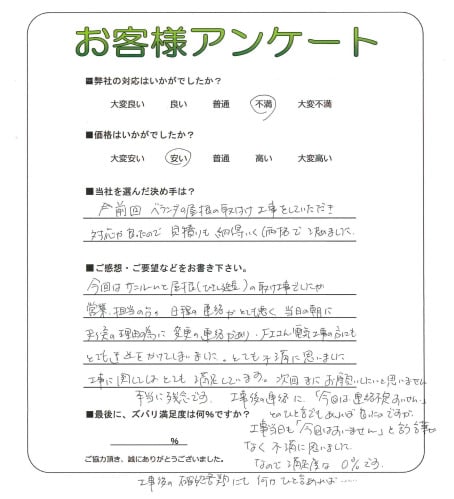 お客様アンケート
■弊社の対応はいかがでしたか?
大変良い 良い 普通 不満 大変不満
■価格はいかがでしたか?
大変安い 安い 普通 高い 大変高い
■当社を選んだ決め手は?
前回 ベランダの屋根の取付け工事をしていただき
対応が良かったので 見積りも納得いく価格で決めました
■ご感想・ご要望などをお書き下さい。
今回はサンルームと屋根の取付工事でしたが
営業担当の方の 日程の連絡がとても悪く 当日の朝に
理由の為に 変更の連絡があり、エアコン電気工事の方にも
とても迷惑をかけてしまいました。とても不満に思いました
工事に関してはとても満足しています。次回またお願いしたいと思いません
本当に残念です。工事後の連絡に、「今回は連絡役すいません」
とのひと言でもあれば良かったのですが、
■最後に、ズバリ満足度は何%ですか?
工事当日も「今回はすいません」と
なく 不満に思いました。
%
なので満足度は 0%です。
ご協力頂き、誠にありがとうございました。
工事後の 確認書類にも 何かひと言あれば……